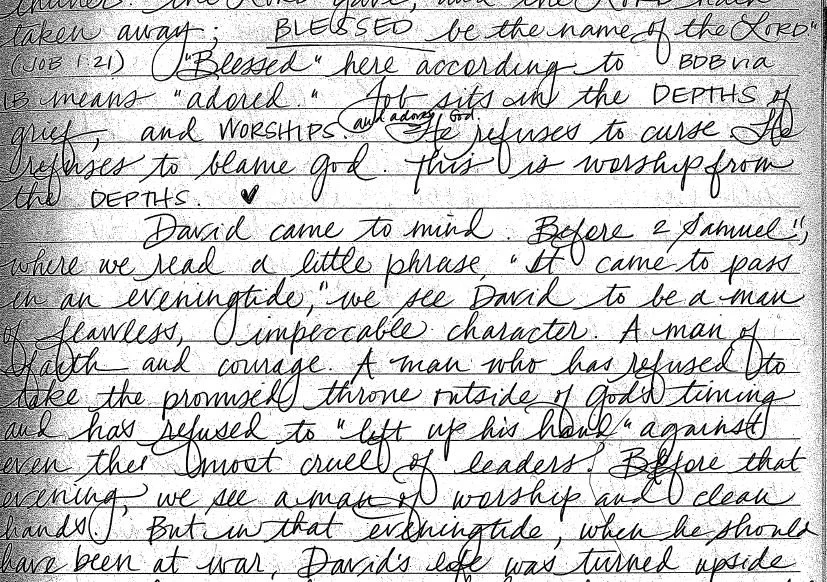 thither: the LORD gave, and the LORD hath
taken away; BLESSED be the name of the LORD"
(JOB 1:21) "Blessed" here according to BDB via
LB means "adored." Job sits in the DEPTHS of
grief, and WORSHIPS. and adores God. He refuses to curse. He
refuses to blame God. This is worship from
the DEPTHS. ♥
David came to mind. Before 2 Samuel 11,
where we read a little phrase, "It came to pass
in an eveningtide," we see David to be a man
of flawless, impeccable character. A man of
faith and courage. A man who has refused to
take the promised throne outside of God's timing
and has refused to "lift up his hand" against
even the most cruel of leaders. Before that
evening, we see a man of worship and clean
hands. But in that eveningtide, when he should
have been at war, David's life was turned upside